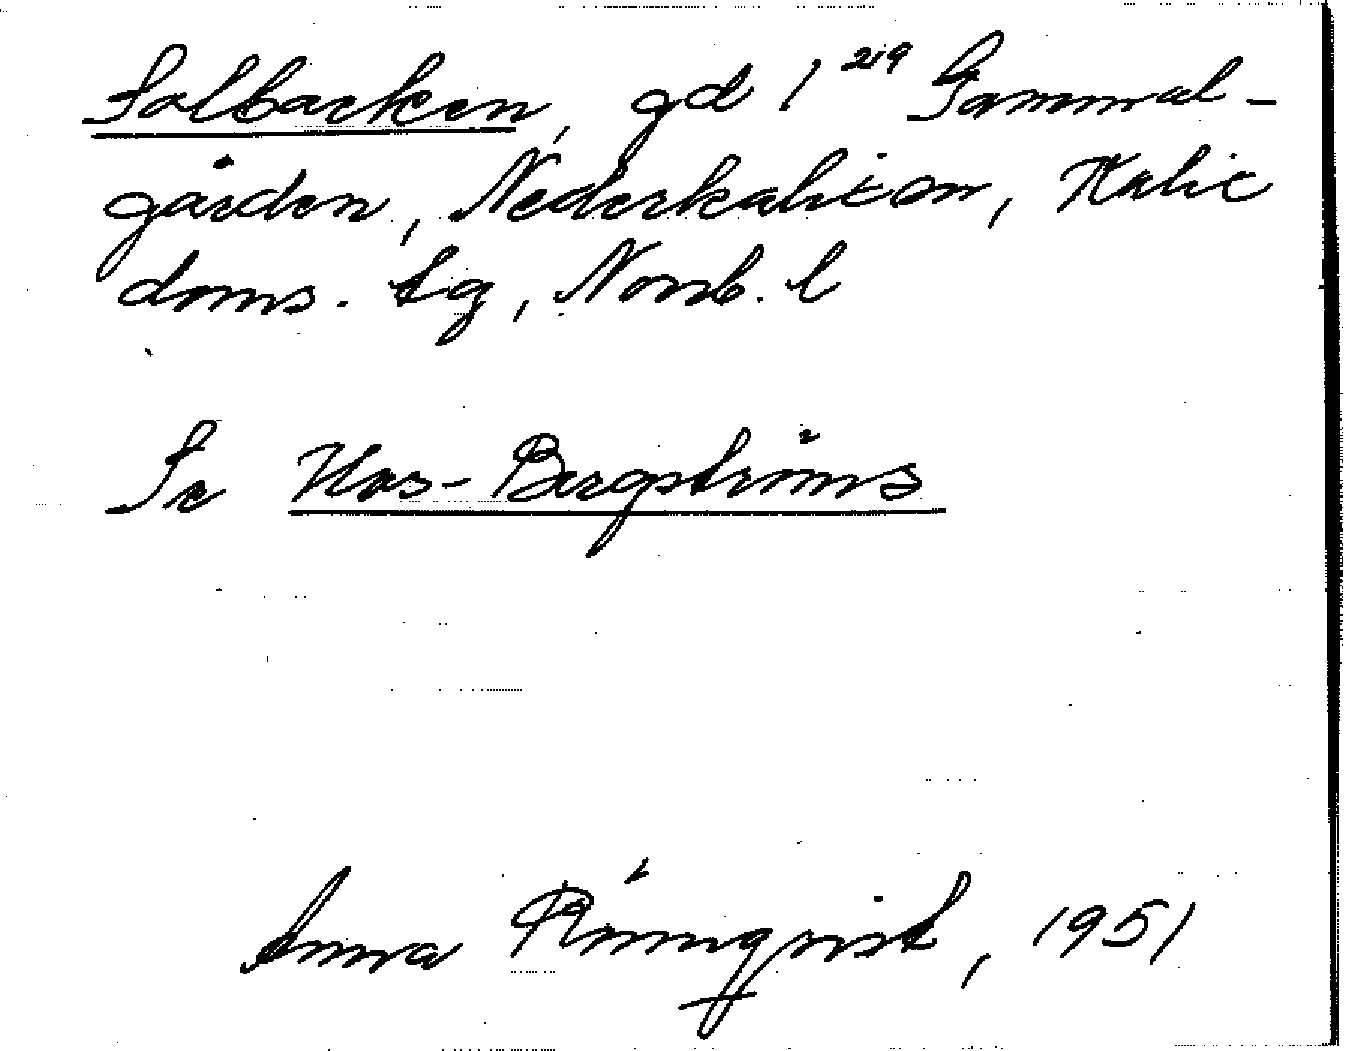 Solbacken, gd 1²¹⁹ Gammal-
gården, Nederkalix sn, Kalix
doms. tg, Norrb. l
Se Uus-Bergströms
Anna Rönnqvist, 1951